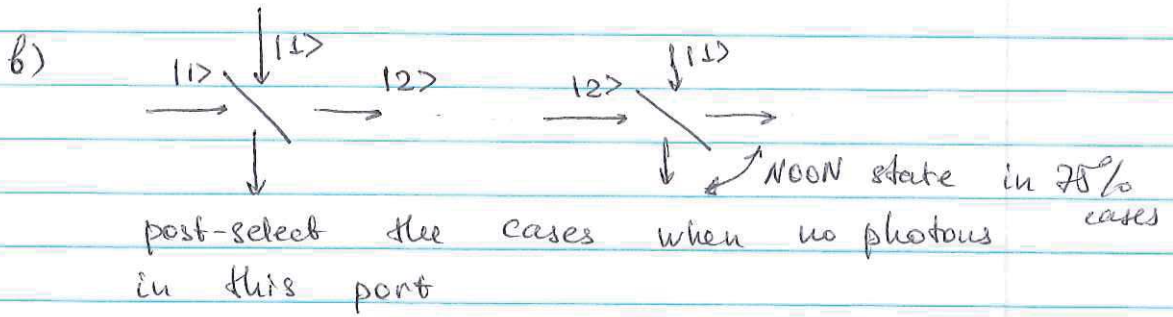 b)
|1> |1> |2> |2> |1>
NOON state in 75% cases
post-select the cases when no photons
in this port